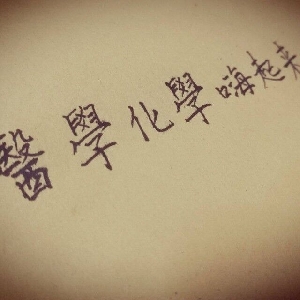 醫學化學嗨起來